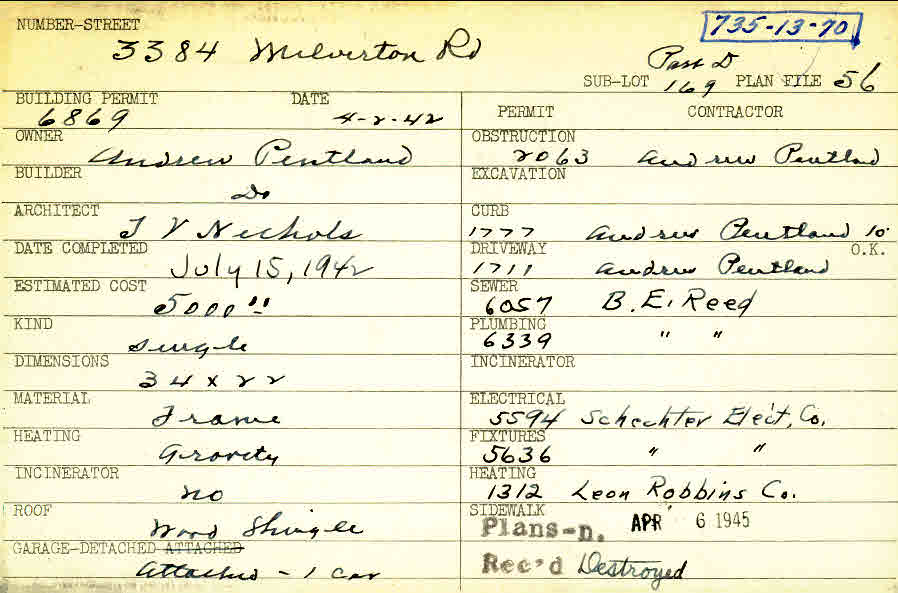 NUMBER-STREET
735-13-70
3384 Milverton Rd
Parr D
SUB-LOT 169 PLAN FILE 56
BUILDING PERMIT DATE
6869 4-2-42
OWNER
Andrew Pentland
BUILDER
Do
ARCHITECT
T V Nichols
DATE COMPLETED
July 15, 1942
ESTIMATED COST
5000"
KIND
Single
DIMENSIONS
34 x 22
MATERIAL
Frame
HEATING
Gravity
INCINERATOR
no
ROOF
Wood Shingle
GARAGE-DETACHED ATTACHED
Attached - 1 car
PERMIT CONTRACTOR
OBSTRUCTION
2063 Andrew Pentland
EXCAVATION
CURB
1777 Andrew Pentland 10'
DRIVEWAY O.K.
1711 Andrew Pentland
SEWER
6057 B. E. Reed
PLUMBING
6339 " "
INCINERATOR
ELECTRICAL
5594 Schechter Elect, Co.
FIXTURES
5636 " "
HEATING
1312 Leon Robbins Co.
SIDEWALK
Plans-D. APR 6 1945
Rec'd Destroyed